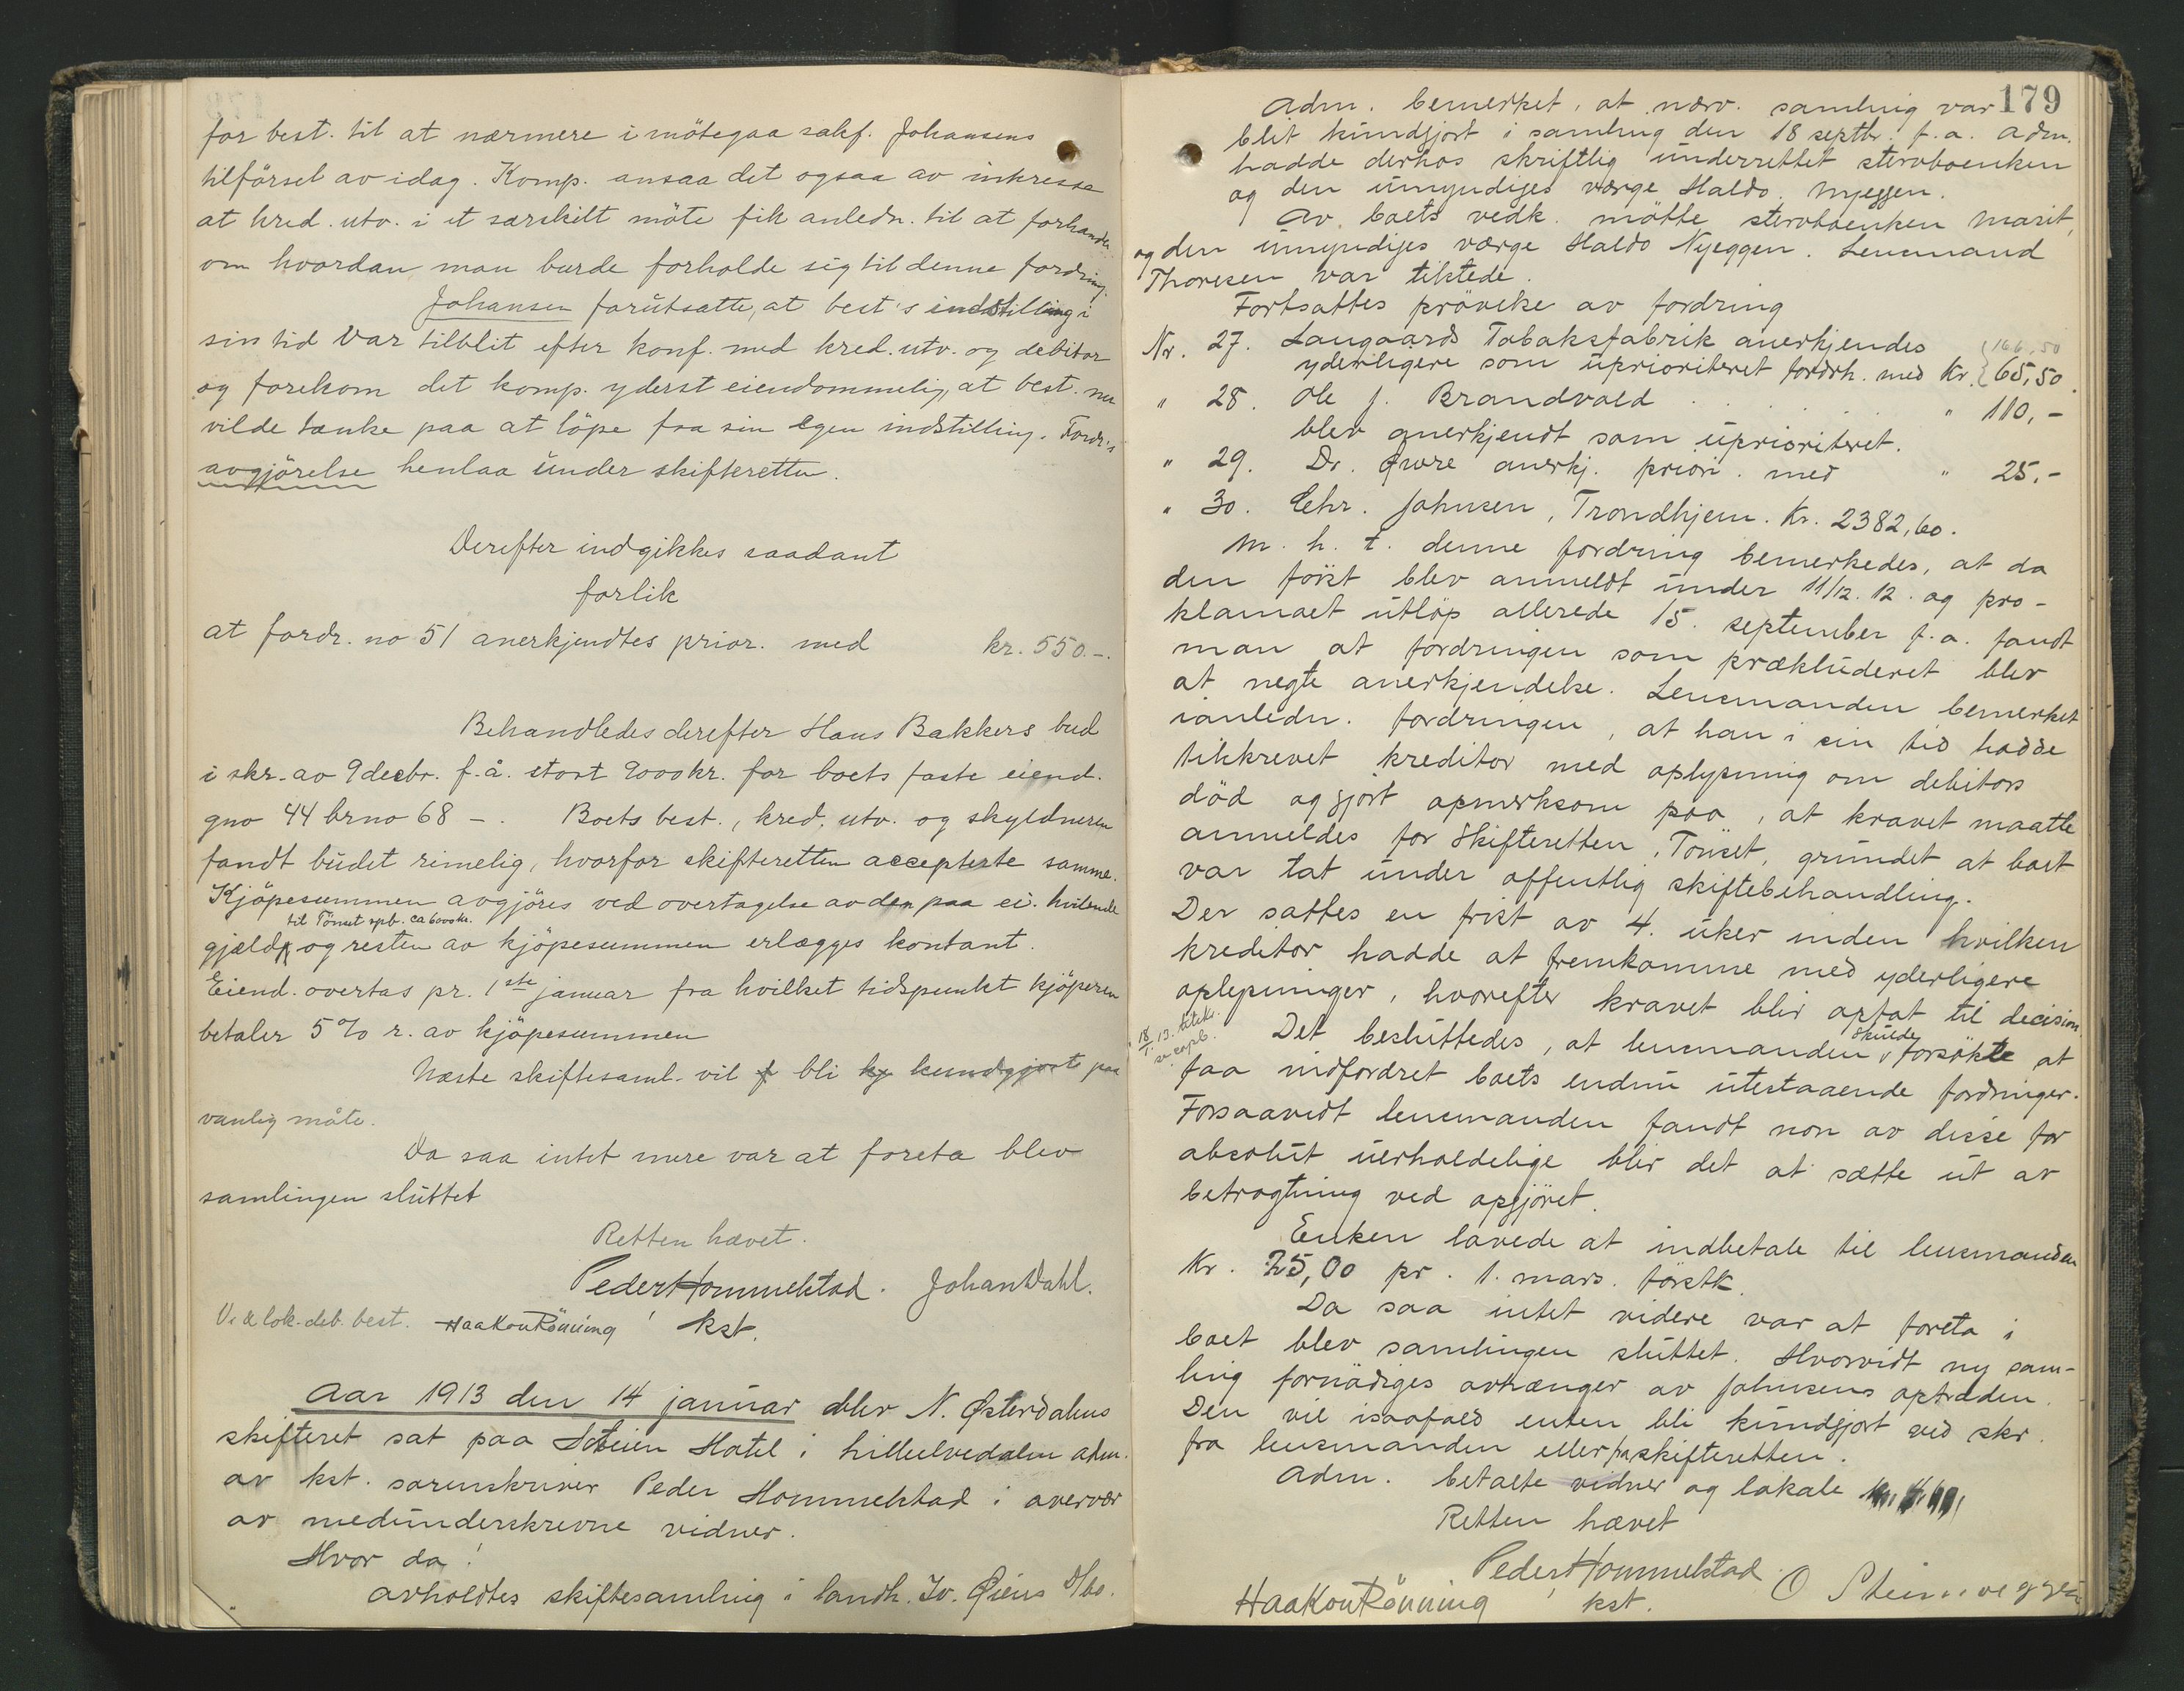 for best. til at nærmere i mötegaa sakf. Johansens
tilförsel av idag. Komp. ansaa det ogsaa av interesse
at kred. utv. i et særskilt möte fik anledn. til at forhandle
om hvordan man burde forholde sig til denne fordring.
Johansen forutsatte, at best's indstilling i
sin tid var tilblit efter konf. med kred. utv. og debitor
og forekom det komp. yderst eiendommelig, at best. nu
vilde tænke paa at löpe fra sin egen indstilling. Fordr.'s
avgjörelse henlaa under skifteretten.
Derefter indgikkes saadant
forlik
at fordr. no 51 anerkjendtes prior. med kr. 550.-.
Behandledes derefter Hans Bakkers bud
i skr. av 9 decbr. f.å. stort 9000 kr. for boets faste eiend.
gno 44 brno 68 -. Boets best., kred. utv. og skyldneren
fandt budet rimelig, hvorfor skifteretten accepterte samme.
Kjöpesummen avgjöres ved overtagelse av den paa ei. hvilende
til Tönset spb. ca 6000 kr.
gjæld og resten av kjöpesummen erlægges kontant.
Eiend. overtas pr. 1ste januar fra hvilket tidspunkt kjöperen
betaler 5% r. av kjöpesummen
Næste skiftesaml. vil bli kundgjort paa
vanlig måte.
Da saa intet mere var at foreta blev
samlingen sluttet
Retten hævet.
Peder Hommelstad. Johan Dahl.
Ved lok. deb. best. Haakon Rönning kst.
Aar 1913 den 14 januar blev N. Østerdalens
skifteret sat paa Steien Hotel i Lilleelvedalen adm.
av kst. sorenskriver Peder Hommelstad i overvær
av medunderskrevne vidner.
Hvor da!
avholdtes skiftesamling i landh. Iv. Øiens d/bo.
179
Adm. bemerket, at nærv. samling var
blit kundgjort i samling den 18 septbr. f.a. Adm.
hadde derhos skriftlig underrettet stervboenken
og den umyndiges værge Haldo Nyeggen.
Av boets vedk. mötte stervboenken Marit,
og den umyndiges værge Haldo Nyeggen. Lensmand
Thoresen var tilstede.
Fortsattes prövelse av fordring
166,50
Nr. 27. Langaards Tobaksfabrik anerkjendes
yderligere som uprioriteret fordrh. med Kr. 65,50
" 28. Ole J. Brandvold . . . . . " 110,-
blev anerkjendt som uprioriteret.
" 29. Dr. Øvre anerkj. priori. med " 25.-
" 30. Chr. Johnsen, Trondhjem. Kr. 2382,60.
M. h. t. denne fordring bemerkedes, at da
den först blev anmeldt under 11/12. 12. og pro-
klamaet utlöp allerede 15. september f.a. fandt
man at fordringen som prækluderet blev
at negte anerkjendelse. Lensmanden bemerket
ianledn. fordringen, at han i sin tid hadde
tilskrevet kreditor med oplysning om debitors
död og gjort opmerksom paa, at kravet maatte
anmeldes for Skifteretten, Tönset, grundet at boet
var tat under offentlig skiftebehandling.
Der sattes en frist av 4. uker inden hvilken
kreditor hadde at fremkomme med yderligere
oplysninger, hvorefter kravet blir optat til decision.
18/1. 13.
Det besluttedes, at lensmanden skulde forsöke at
faa indfordret boets endnu utestaaende fordringer.
Forsaavidt lensmanden fandt non av disse for
absolut uerholdelige blir det at sætte ut av
betragtning ved opgjöret.
Enken lovede at indbetale til lensmanden
Kr. 25,00 pr. 1. mars. förstk.
Da saa intet videre var at foreta i
boet blev samlingen sluttet. Hvorvidt ny sam-
ling fornödiges avhænger av Johnsens optræden.
Den vil isaafald enten bli kundgjort ved skr.
fra lensmanden eller fra skifteretten.
Adm. betalte vidner og lokale
Retten hævet
Peder Hommelstad
Haakon Rönning kst. O Steinveggen